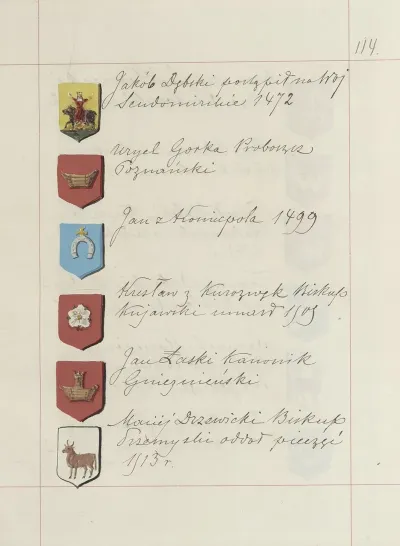 114.
Jakób Dębski postąpił na Woj
Sendomirskie 1472
Uryel Gorka Proboszcz
Poznański
Jan z 1499
Kresław z Kurozwęk Biskup
Kujawski umarł 1503
Jan Łaski Kanonik
Gnieznieński
Maciej Drzewicki Biskup
Przemyski oddał pieczęć
1513 r.